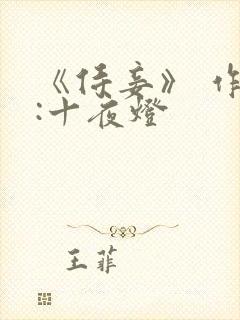 《侯妾》 作
:十夜燈
王菲